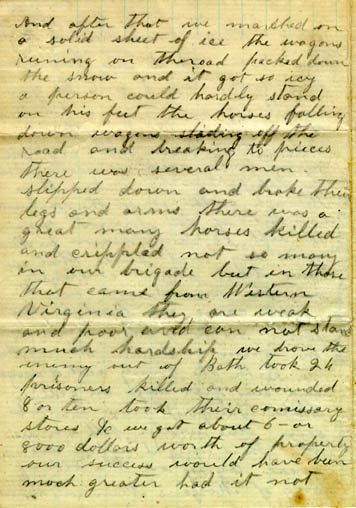 And after that we marched on
a solid sheet of ice the wagons
runing on the road packed down
the snow and it got so icy
a person could hardly stand
on his feet the horses falling
down wagons slading off the
road and breaking to pieces
there was several men
slipped down and broke their
legs and arms there was a
great many horses killed
and crippled not so many
in our brigade but in those
that came from Western
Virginia they are weak
and poor and can not stand
much hardship we drove the
enemy out of Bath took 24
prisoners killed and wounded
8 or ten took their comissary
stores &c we got about 6 or
8000 dollars worth of property
our success would have been
much greater had it not